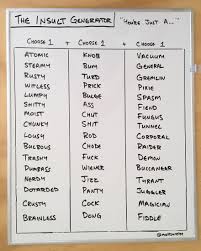 THE INSULT GENERATOR "YOU'RE JUST A..."
CHOOSE 1 + CHOOSE 1 + CHOOSE 1
ATOMIC KNOB VACUUM
STEAMY BUM GENERAL
RUSTY TURD GREMLIN
WITLESS PRICK PIXIE
LUMPY BULGE SPASM
SHITTY ASS
MOIST FUNGUS
CHUNKY SHIT TUNNEL
LOUSY ROD CORPORAL
RAIDER
TRASHY FUCK DEMON
DUMBASS WIENER BUCCANEER
NERDY JIZZ TYRANT
DOTARDED PANTY JUGGLER
CRUSTY COCK MAGICIAN
BRAINLESS DONG FIDDLE